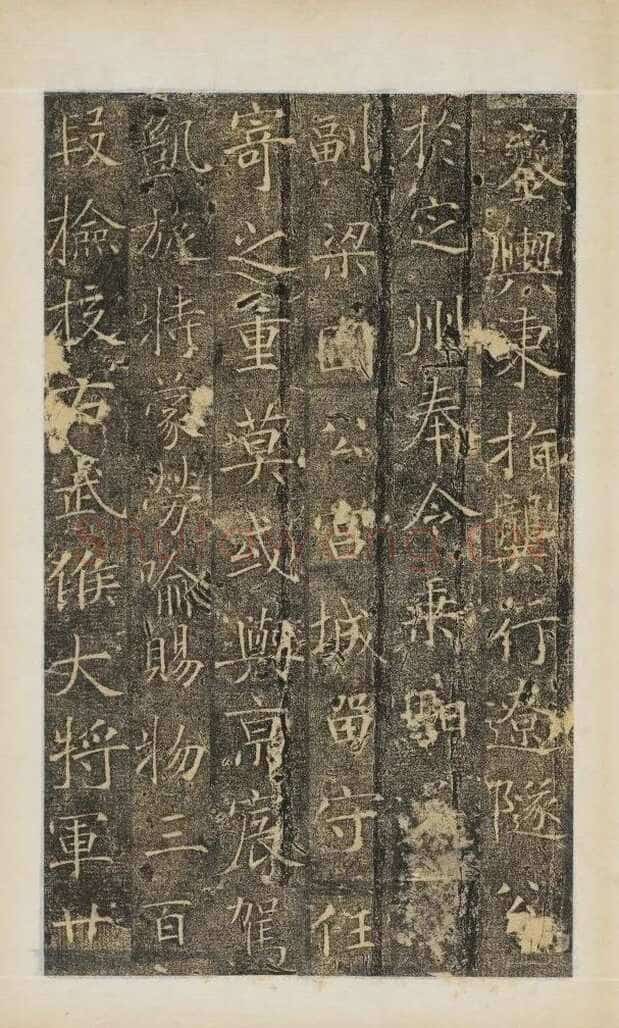 鑾輿東指龔行遼隧公
於定州奉令乘馹
副梁國公宮城留守任
寄之重莫或與京宸駕
凱旋特蒙勞喻賜物三百
段檢校右武候大將軍廿